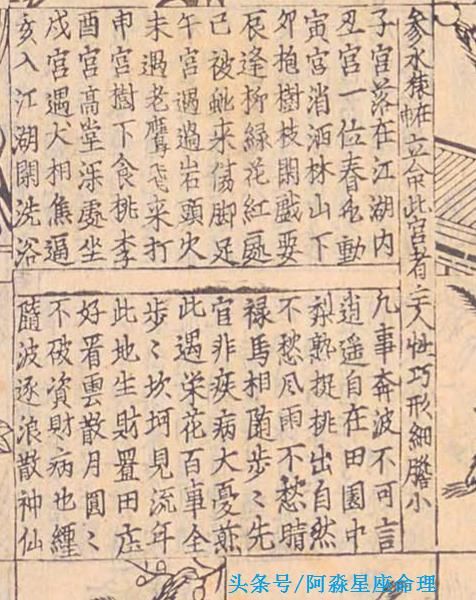 參水猿立命此宮者主人性巧形細膽小
子宮落在江湖內
凡事奔波不可言
丑宮一位春色動
逍遥自在田園中
寅宮消洒林山下
梨熟挑出自然
夘抱樹枝閑戲耍
不愁風雨不愁晴
辰逢柳綠花紅處
禄馬相隨步〻先
巳被虵來傷脚足
官非疾病大憂煎
午宮遇過岩頭火
此遇榮花百事全
未遇老鷹飛來打
步〻坎坷見流年
申宮樹下食桃李
此地生財置田庄
酉宮高堂深處坐
好看雲散月圓〻
戌宮遇犬相焦逼
不破資財病也纏
亥入江湖閑洗浴
隨波逐浪散神仙
头条号/阿淼星座命理